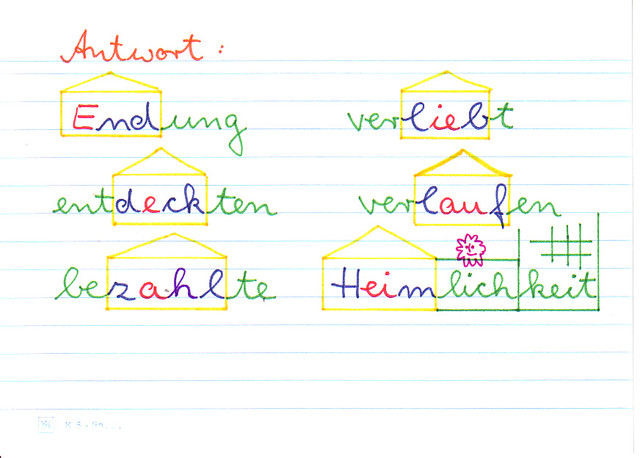 Antwort :
Endung verliebt
entdeckten verlaufen
bezahlte Heimlichkeit